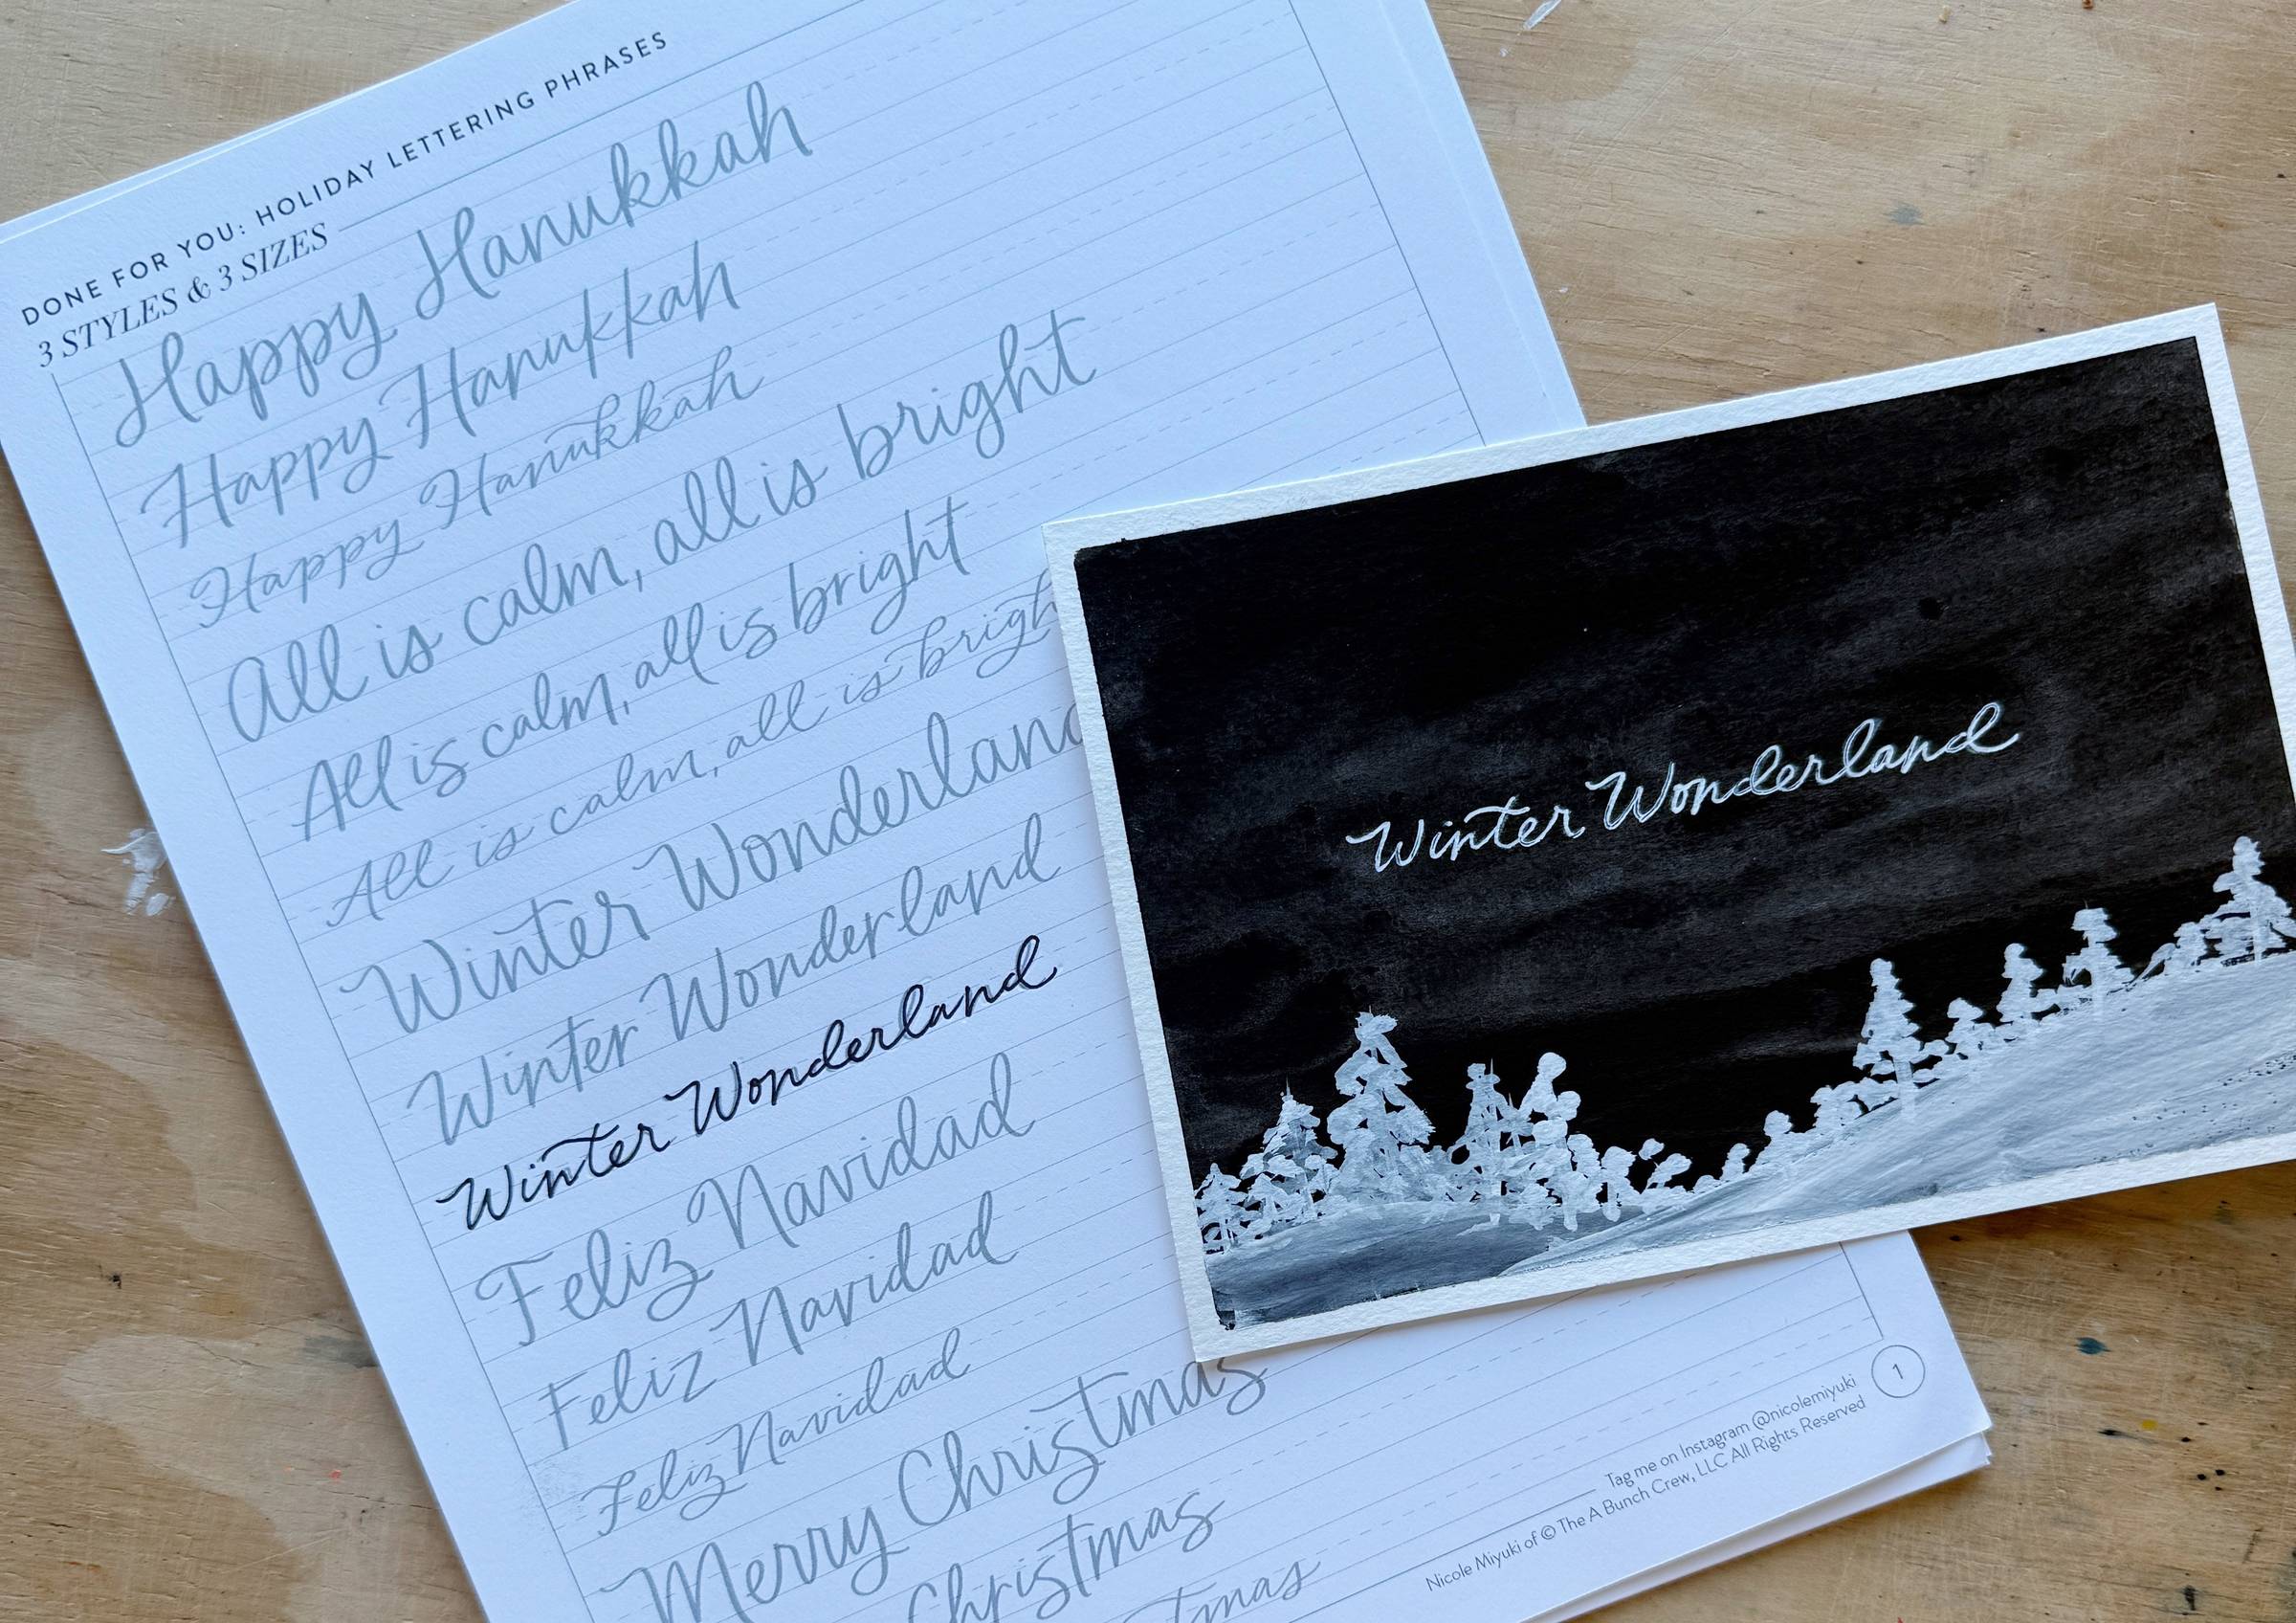 DONE FOR YOU: HOLIDAY LETTERING PHRASES
3 STYLES & 3 SIZES
Happy Hanukkah
Happy Hanukkah
Happy Hanukkah
All is calm, all is bright
All is calm, all is bright
All is calm, all is brigh
Winter Wonderland
Winter Wonderland
Winter Wonderland
Feliz Navidad
Feliz Navidad
Feliz Navidad
Merry Christmas
Christmas
tmas
Winter Wonderland
Tag me on Instagram @nicolemiyuki
Nicole Miyuki of © The A Bunch Crew, LLC All Rights Reserved
1